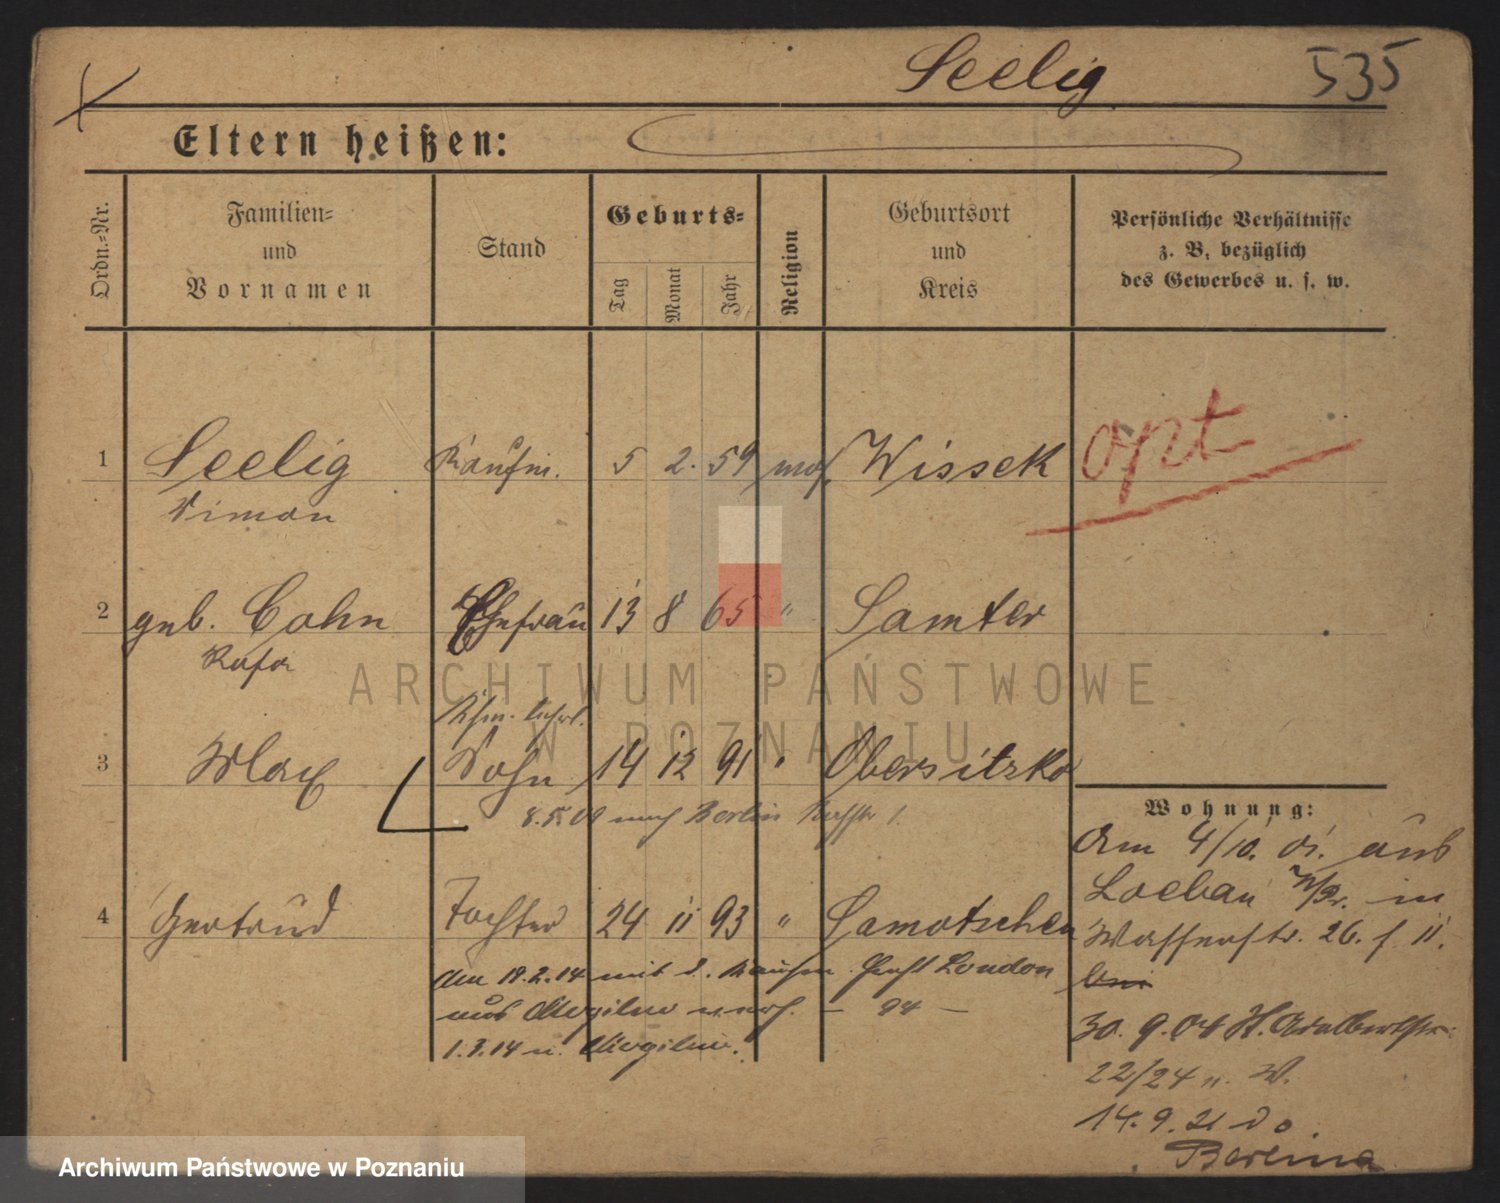 Seelig
535
Eltern heißen:
Ordn.=Nr.
Familien=
und
Vornamen
Stand
Geburts=
Tag
Monat
Jahr
Religion
Geburtsort
und
Kreis
Persönliche Verhältnisse
z. B. bezüglich
des Gewerbes u. s. w.
1 Seelig Kaufm. 5 2. 59 mos. Wissek opt
Simon
2 geb. Cohn Ehefrau 13 8 65 " Samter
Rosa
3 Max Sohn 14 12 91 " Obersitzko
8.5.09 nach Berlin
Wohnung:
Am 4/10. 01. aus
Loebau W/Pr. in
Wasserstr. 26. f. II.
4 Gertrud Tochter 24 11 93 " Samotschen
Am 18.2.14 mit d. Kaufm. London
aus Mogilno verh. – 94 –
1.3.14 n. Mogilno.
30. 9. 04 St. Adalbertstr.
22/24 n. W.
14. 9. 21 do
Berlin
ARCHIWUM PAŃSTWOWE
W POZNANIU
Archiwum Państwowe w Poznaniu